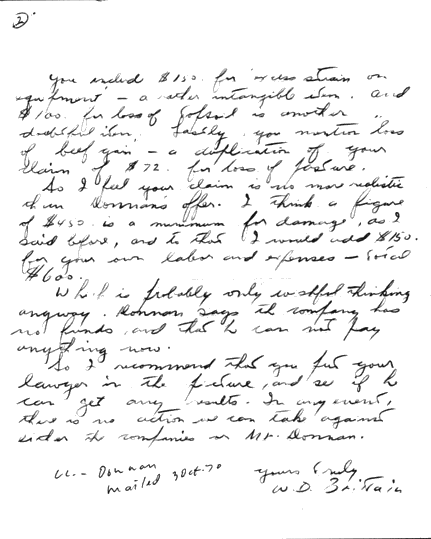 2
you included $150. for excess strain on
equipment — a rather intangible item. And
$100. for loss of topsoil is another
doubtful item. Lastly, you mention loss
of beef gain — a duplication of your
claim of $72. for loss of pasture.
So I feel your claim is no more realistic
than Donnan's offer. I think a figure
of $450 is a minimum for damage, as I
said before, and to that I would add $150.
for your own labor and expenses — total
$600.
Which is probably only wishful thinking
anyway. Donnan says the company has
no funds, and that he can not pay
anything now.
So I recommend that you put your
lawyer in the picture, and see if he
can get any results. In any event,
there is no action we can take against
either the companies or Mr. Donnan.
cc. - Donnan
mailed 3 Oct. 70
yours truly
W. D. Brittain